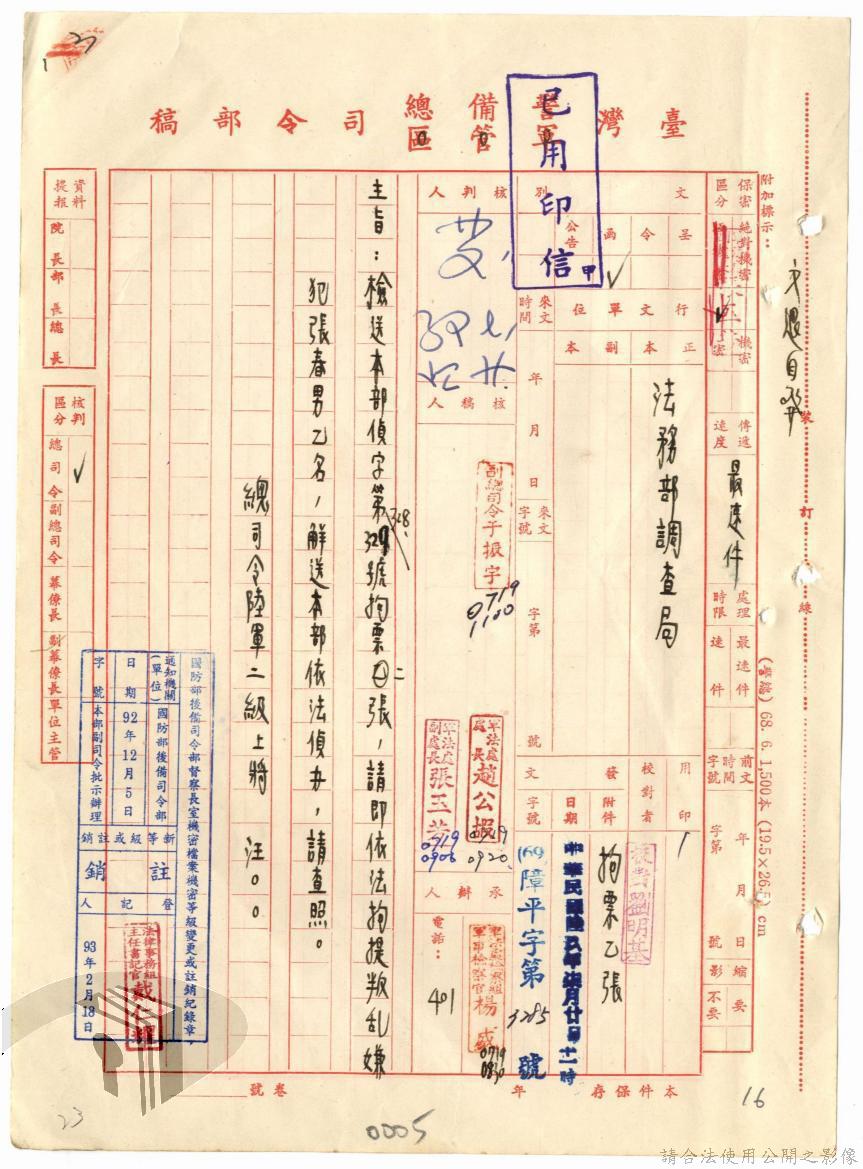 臺灣警備總司令部稿
軍管區
已用印信
甲
附加標示：
保密區分
絕對機密
機密
密
傳遞速度
最速件
處理時限
最速件
速件
前文
時間
字號
年月日
字第
號
縮影
要
不要
裝訂線
(警總) 68. 6. 1,500本 (19.5×26.5) cm
文別
呈
令
函
公告
行文單位
正本
副本
法務部調查局
來文時間
年月日
來文字號
字第
號
用印
校對者
校對劉明基
發文
附件
拘票乙張
日期
中華民國陸玖年柒月廿日十一時
字號
(69)障平字第3285號
核判人
核稿人
副總司令于振宇
0719
1100
軍法處處長趙公嘏
0719
0920
軍法處副處長張玉芳
0719
0906
承辦人
軍事檢察官楊
0719
0830
電話：
401
主旨：檢送本部偵字第328號拘票二張，請即依法拘提叛乱嫌
犯張春男乙名，解送本部依法偵办，請查照。
總司令陸軍二級上將 汪○○
資料提報
院長
部長
總長
核判區分
總司令
副總司令
幕僚長
副幕僚長
單位主管
國防部後備司令部督察長室機密檔案機密等級變更或註銷紀錄章
通知機關(單位)
國防部後備司令部
日期
92年12月5日
字號
本部副司令批示辦理
新等級或註銷
註銷
登記人
法律事務組主任書記官戴仁耀
93年2月18日
本件保存 年
卷號
16
23
0005
請合法使用公開之影像